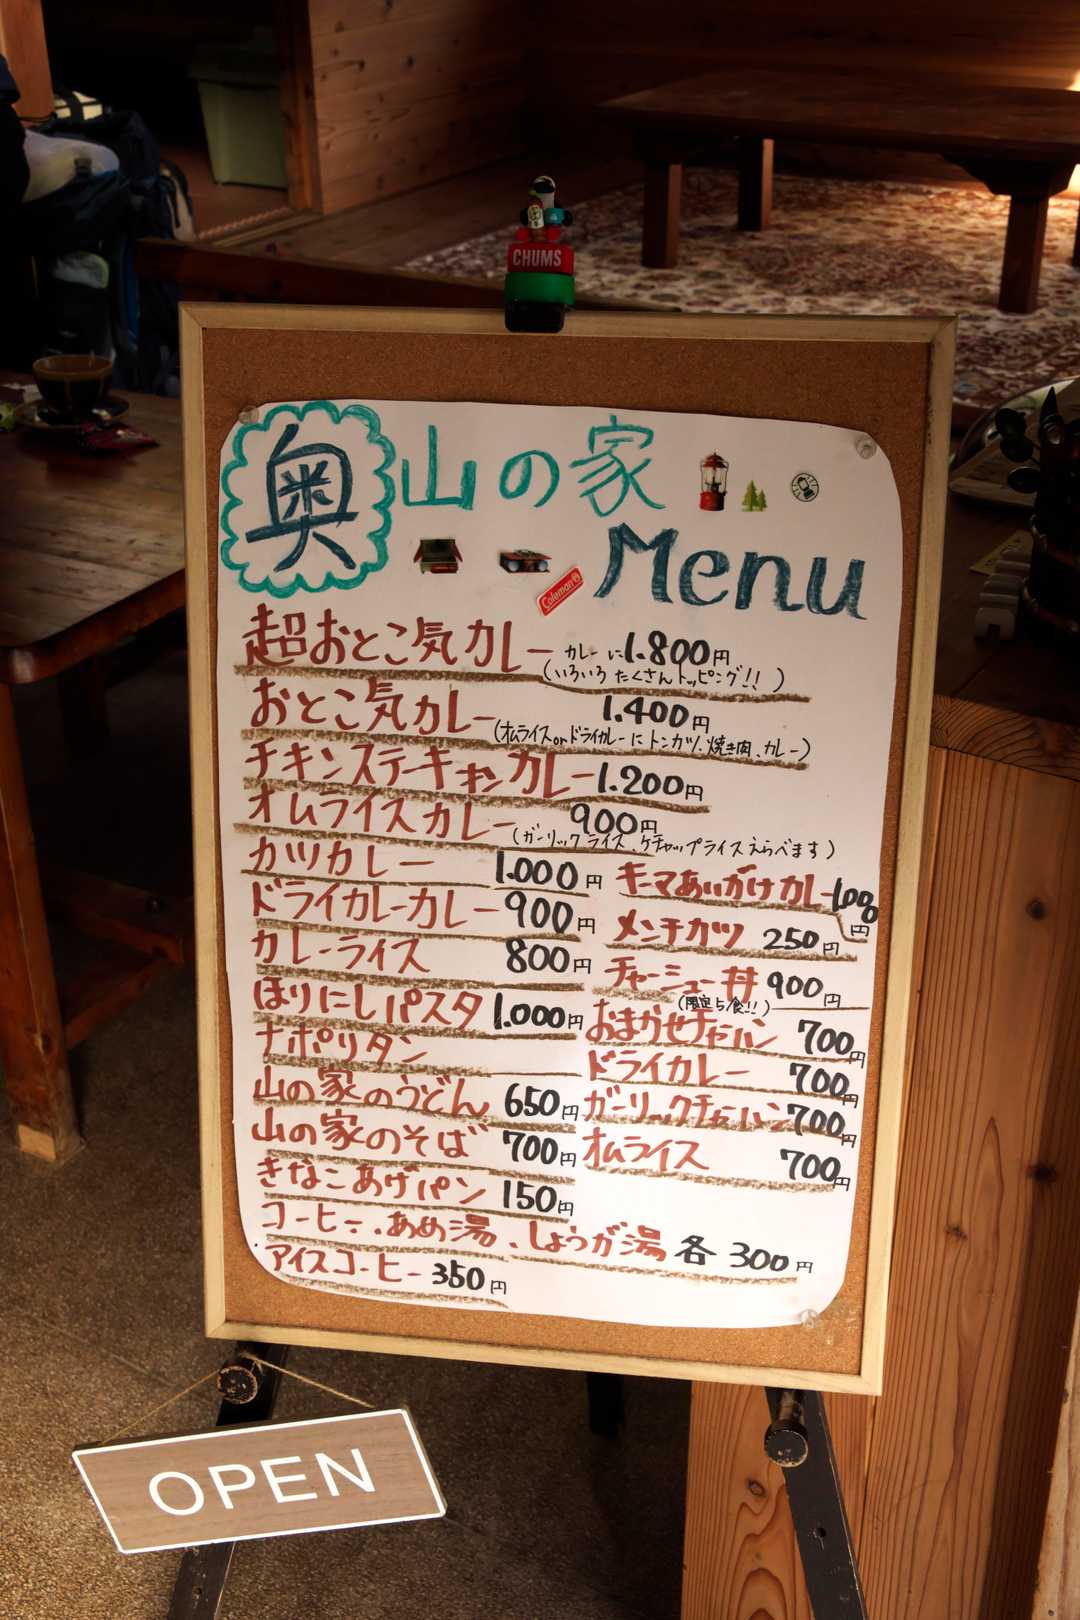 CHUMS
奥山の家
Coleman
Menu
超おとこ気カレー カレーに1.800円
(いろいろたくさんトッピング!!)
おとこ気カレー 1.400円
(オムライスorドライカレーにトンカツ、焼き肉、カレー)
チキンステーキオンカレー 1.200円
オムライスカレー 900円
(ガーリックライス、ケチャップライスえらべます)
カツカレー 1.000円
ドライカレーカレー 900円
カレーライス 800円
ほりにしパスタ 1.000円
ナポリタン
山の家のうどん 650円
山の家のそば 700円
きなこあげパン 150円
キーマあいがけカレー 1000円
メンチカツ 250円
チャーシュー丼 900円
(限定5食!!)
おまかせチャーハン 700円
ドライカレー 700円
ガーリックチャーハン 700円
オムライス 700円
コーヒー、あめ湯、しょうが湯 各 300円
アイスコーヒー 350円
OPEN